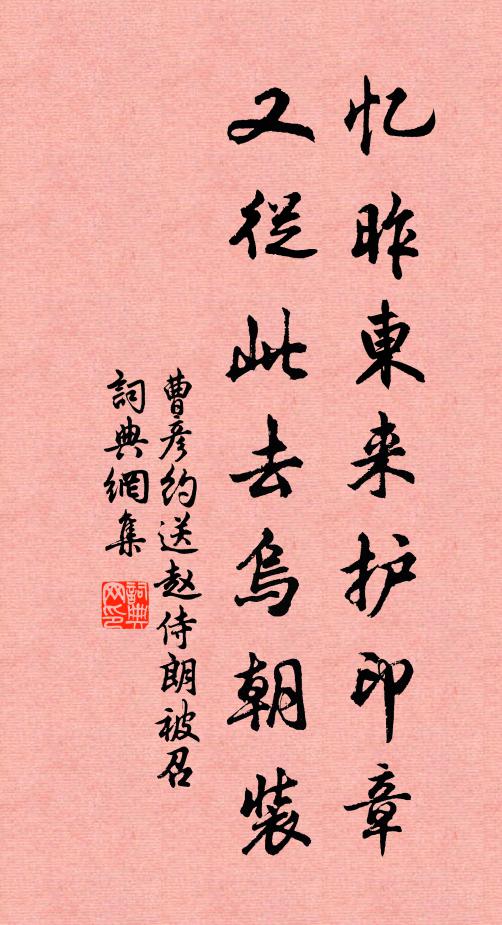 忆昨東来护印章
又從此去烏朝裝
曹彦約送赵侍朗被召
詞典網集
詞典网印